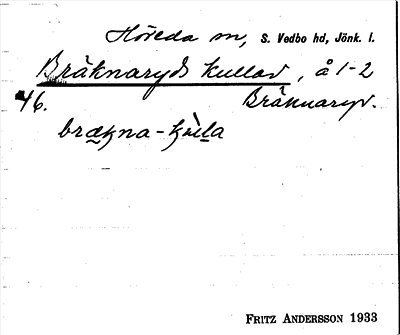 Höreda sn, S. Vedbo hd, Jönk. l.
Bräknaryds kullar, å 1-2
46. Bräknaryd.
brækna-kùla
FRITZ ANDERSSON 1933